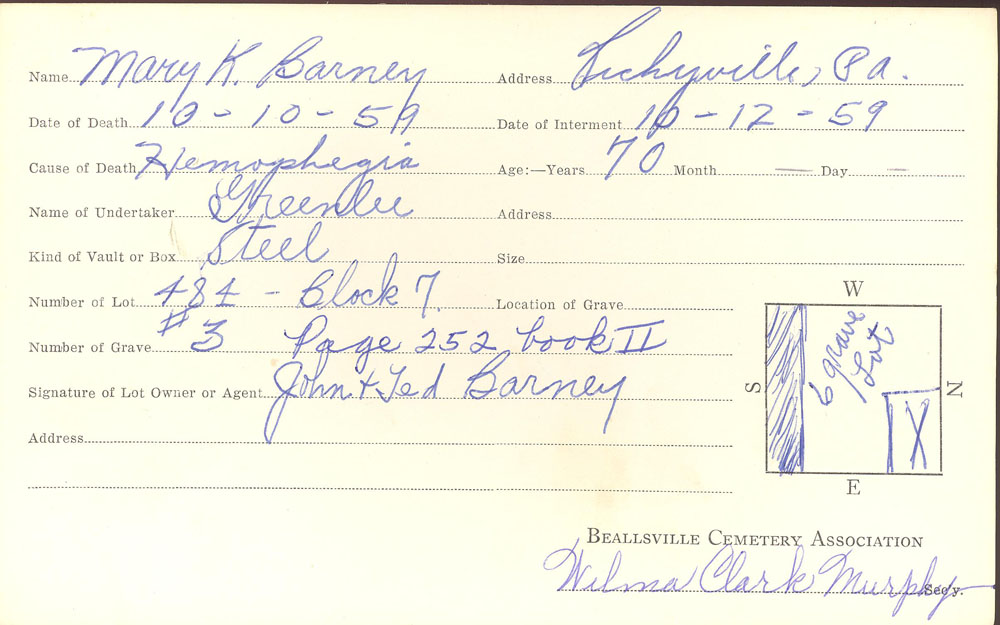 Name Mary K. Barney Address Lickyville, Pa.
Date of Death 10-10-59 Date of Interment 10-12-59
Cause of Death Hemophegia Age:—Years 70 Month — Day —
Name of Undertaker Greenlee Address
Kind of Vault or Box Steel Size
Number of Lot 484 - Block 7 Location of Grave
Number of Grave #3 Page 252 book II
Signature of Lot Owner or Agent John + Ted Barney
Address
W
S
6 grave
Lot
X
N
E
Beallsville Cemetery Association
Wilma Clark Murphy Sec'y.